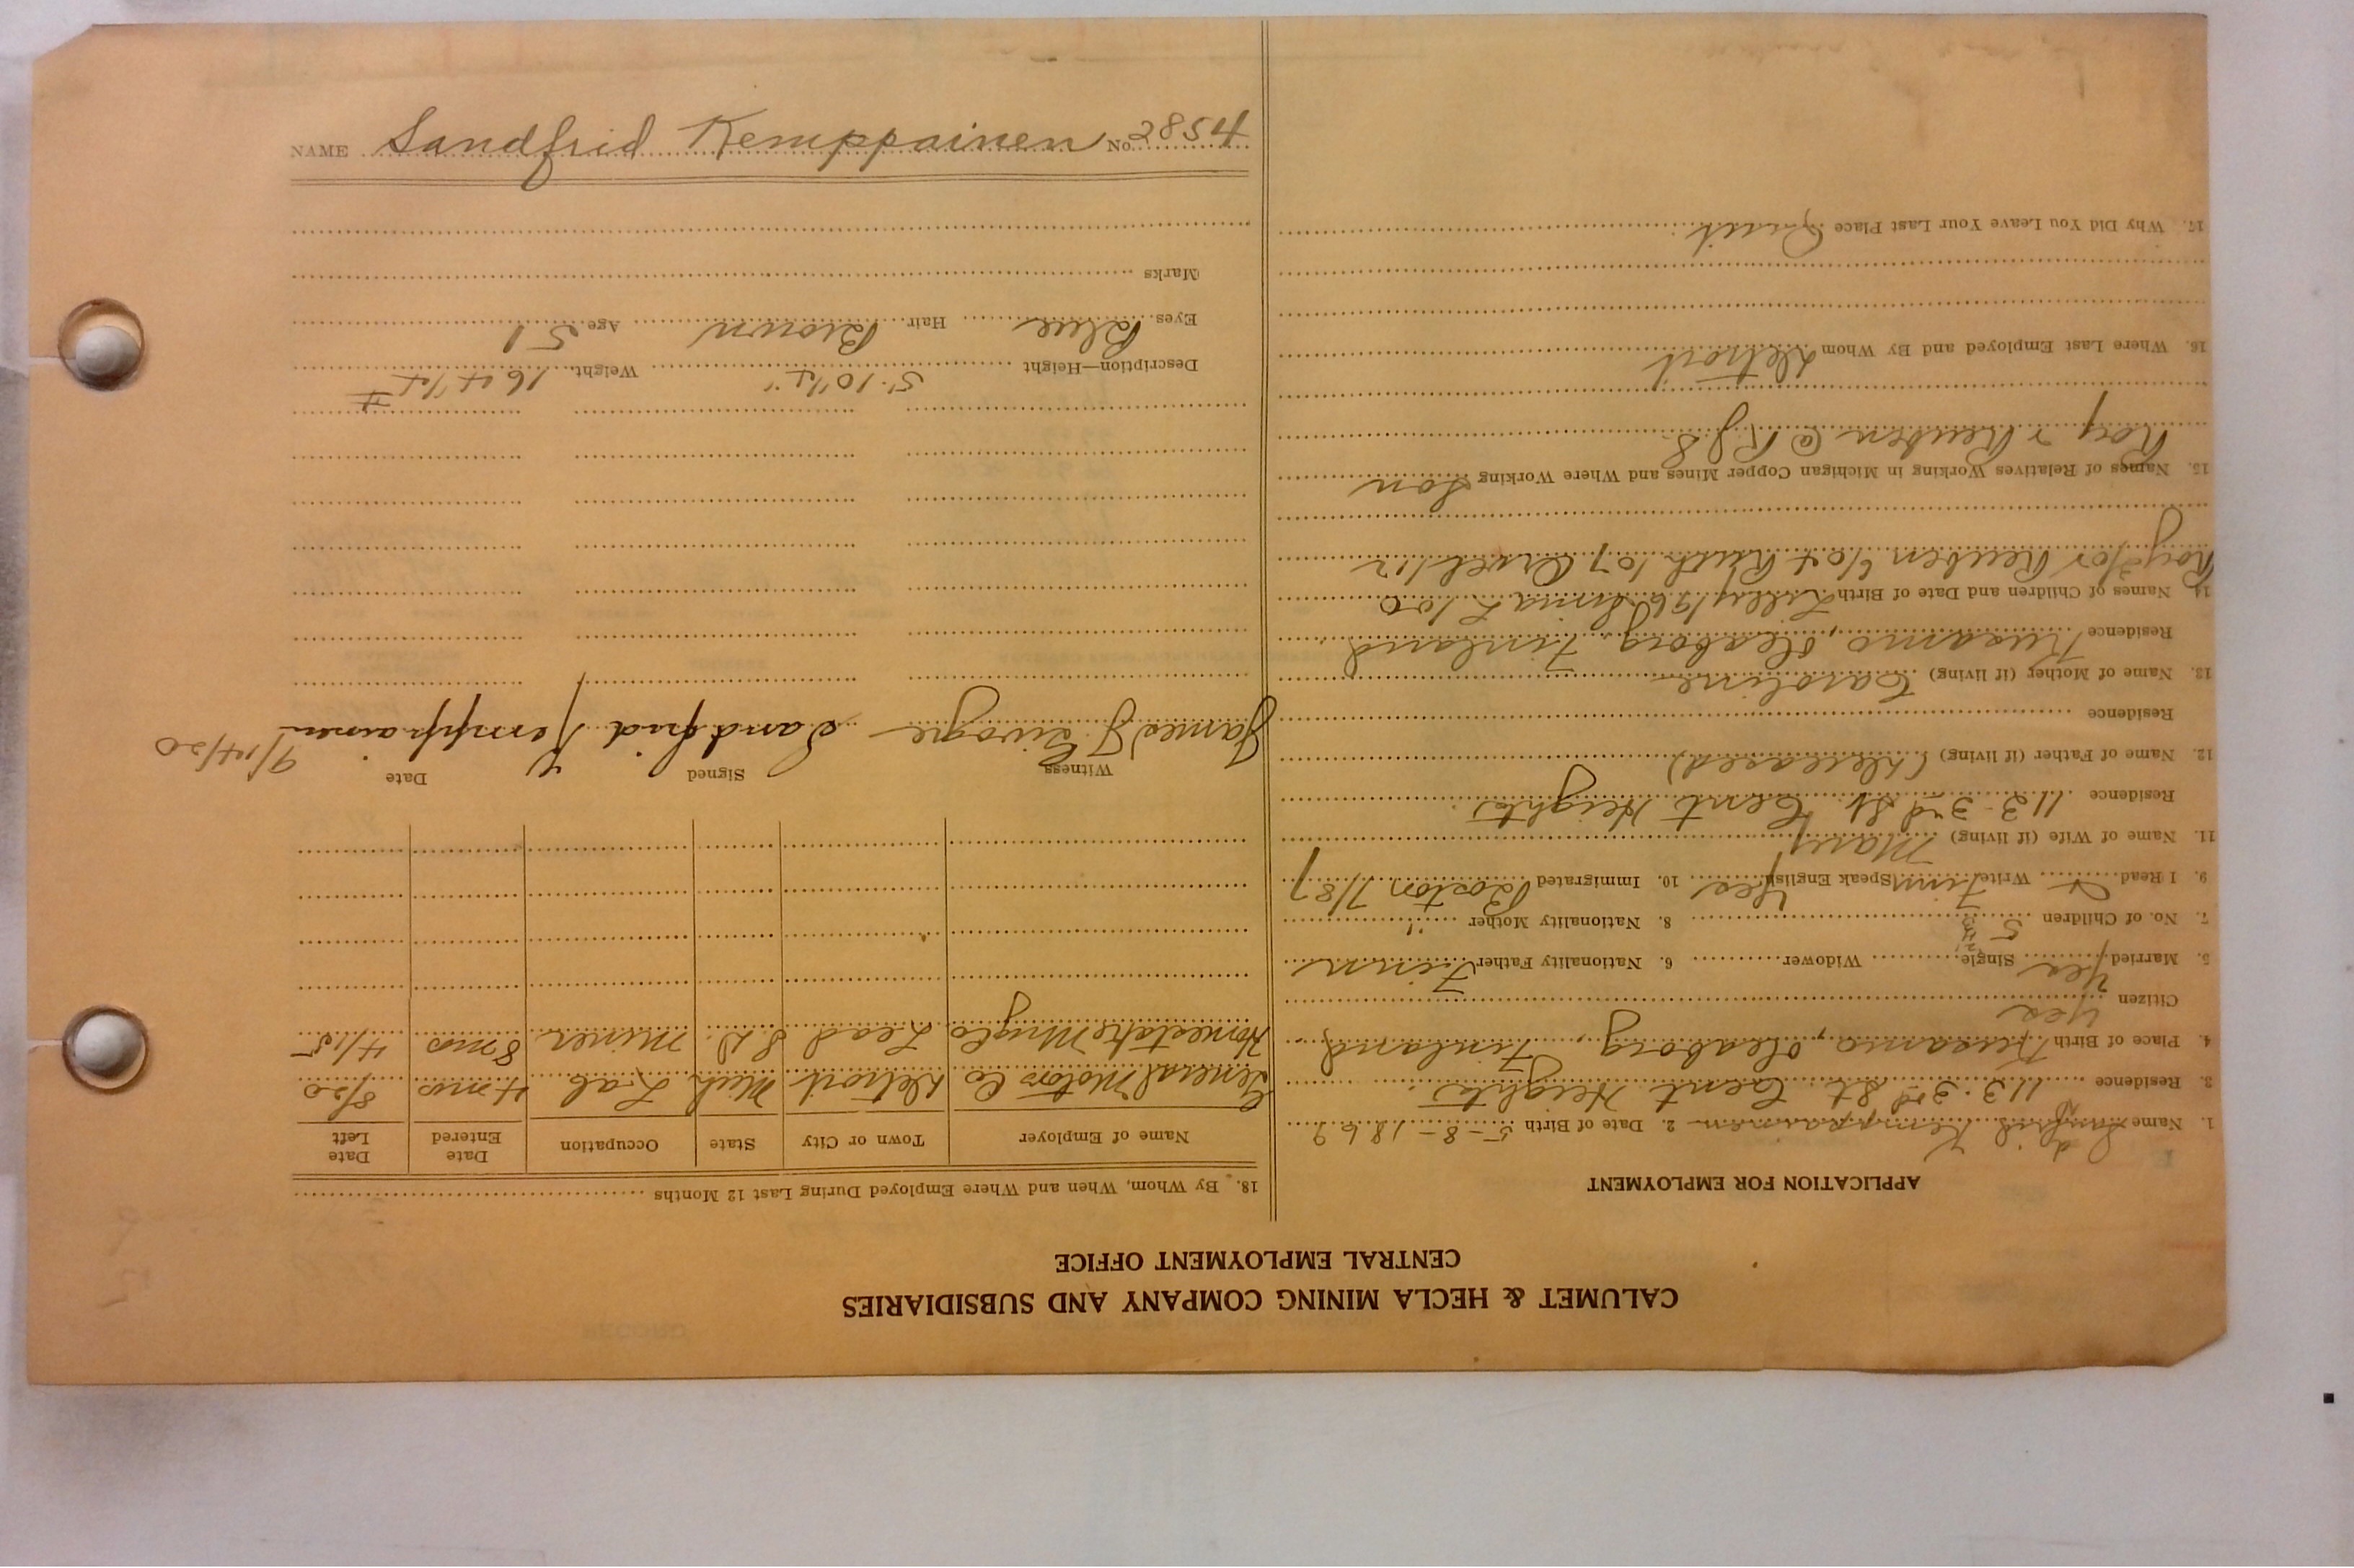 CALUMET & HECLA MINING COMPANY AND SUBSIDIARIES
CENTRAL EMPLOYMENT OFFICE
APPLICATION FOR EMPLOYMENT
1. Name Sandfrid Kemppainen 2. Date of Birth 5-8-1869
3. Residence 113. 3rd St. Cent Heights.
4. Place of Birth Kusamo, Oleaborg, Finland
Citizen yes
5. Married yes Single Widower 6. Nationality Father Finn
7. No. of Children 5 8. Nationality Mother "
9. I Read & Write Finn Speak English yes 10. Immigrated Boston 7/87
11. Name of Wife (if living) Mary
Residence 113-3rd St. Cent Heights.
12. Name of Father (if living) (Deceased)
Residence
13. Name of Mother (if living) Caroline
Residence Kusamo, Oleaborg, Finland.
14. Names of Children and Date of Birth Lilly 1/96 Sima L 1/00
Roy 3/02 Reuben 6/04 Ruth 1/07 Orvel 1/12
15. Names of Relatives Working in Michigan Copper Mines and Where Working Son
Roy & Reuben @ R.J.S.
16. Where Last Employed and By Whom Detroit
17. Why Did You Leave Your Last Place Quit.
18. By Whom, When and Where Employed During Last 12 Months
Name of Employer Town or City State Occupation Date Entered Date Left
General Motors Co Detroit Mich Lab 4 mos 8/20
Homestake Mng Co Lead S.D. Miner 8 mos 4/15
Witness Signed Date
James J. Sandfrid Kemppainen 9/14/20
Description—Height 5' 10 1/2" Weight 164 1/2 #
Eyes Blue Hair Brown Age 51
Marks
NAME Sandfrid Kemppainen No. 2854